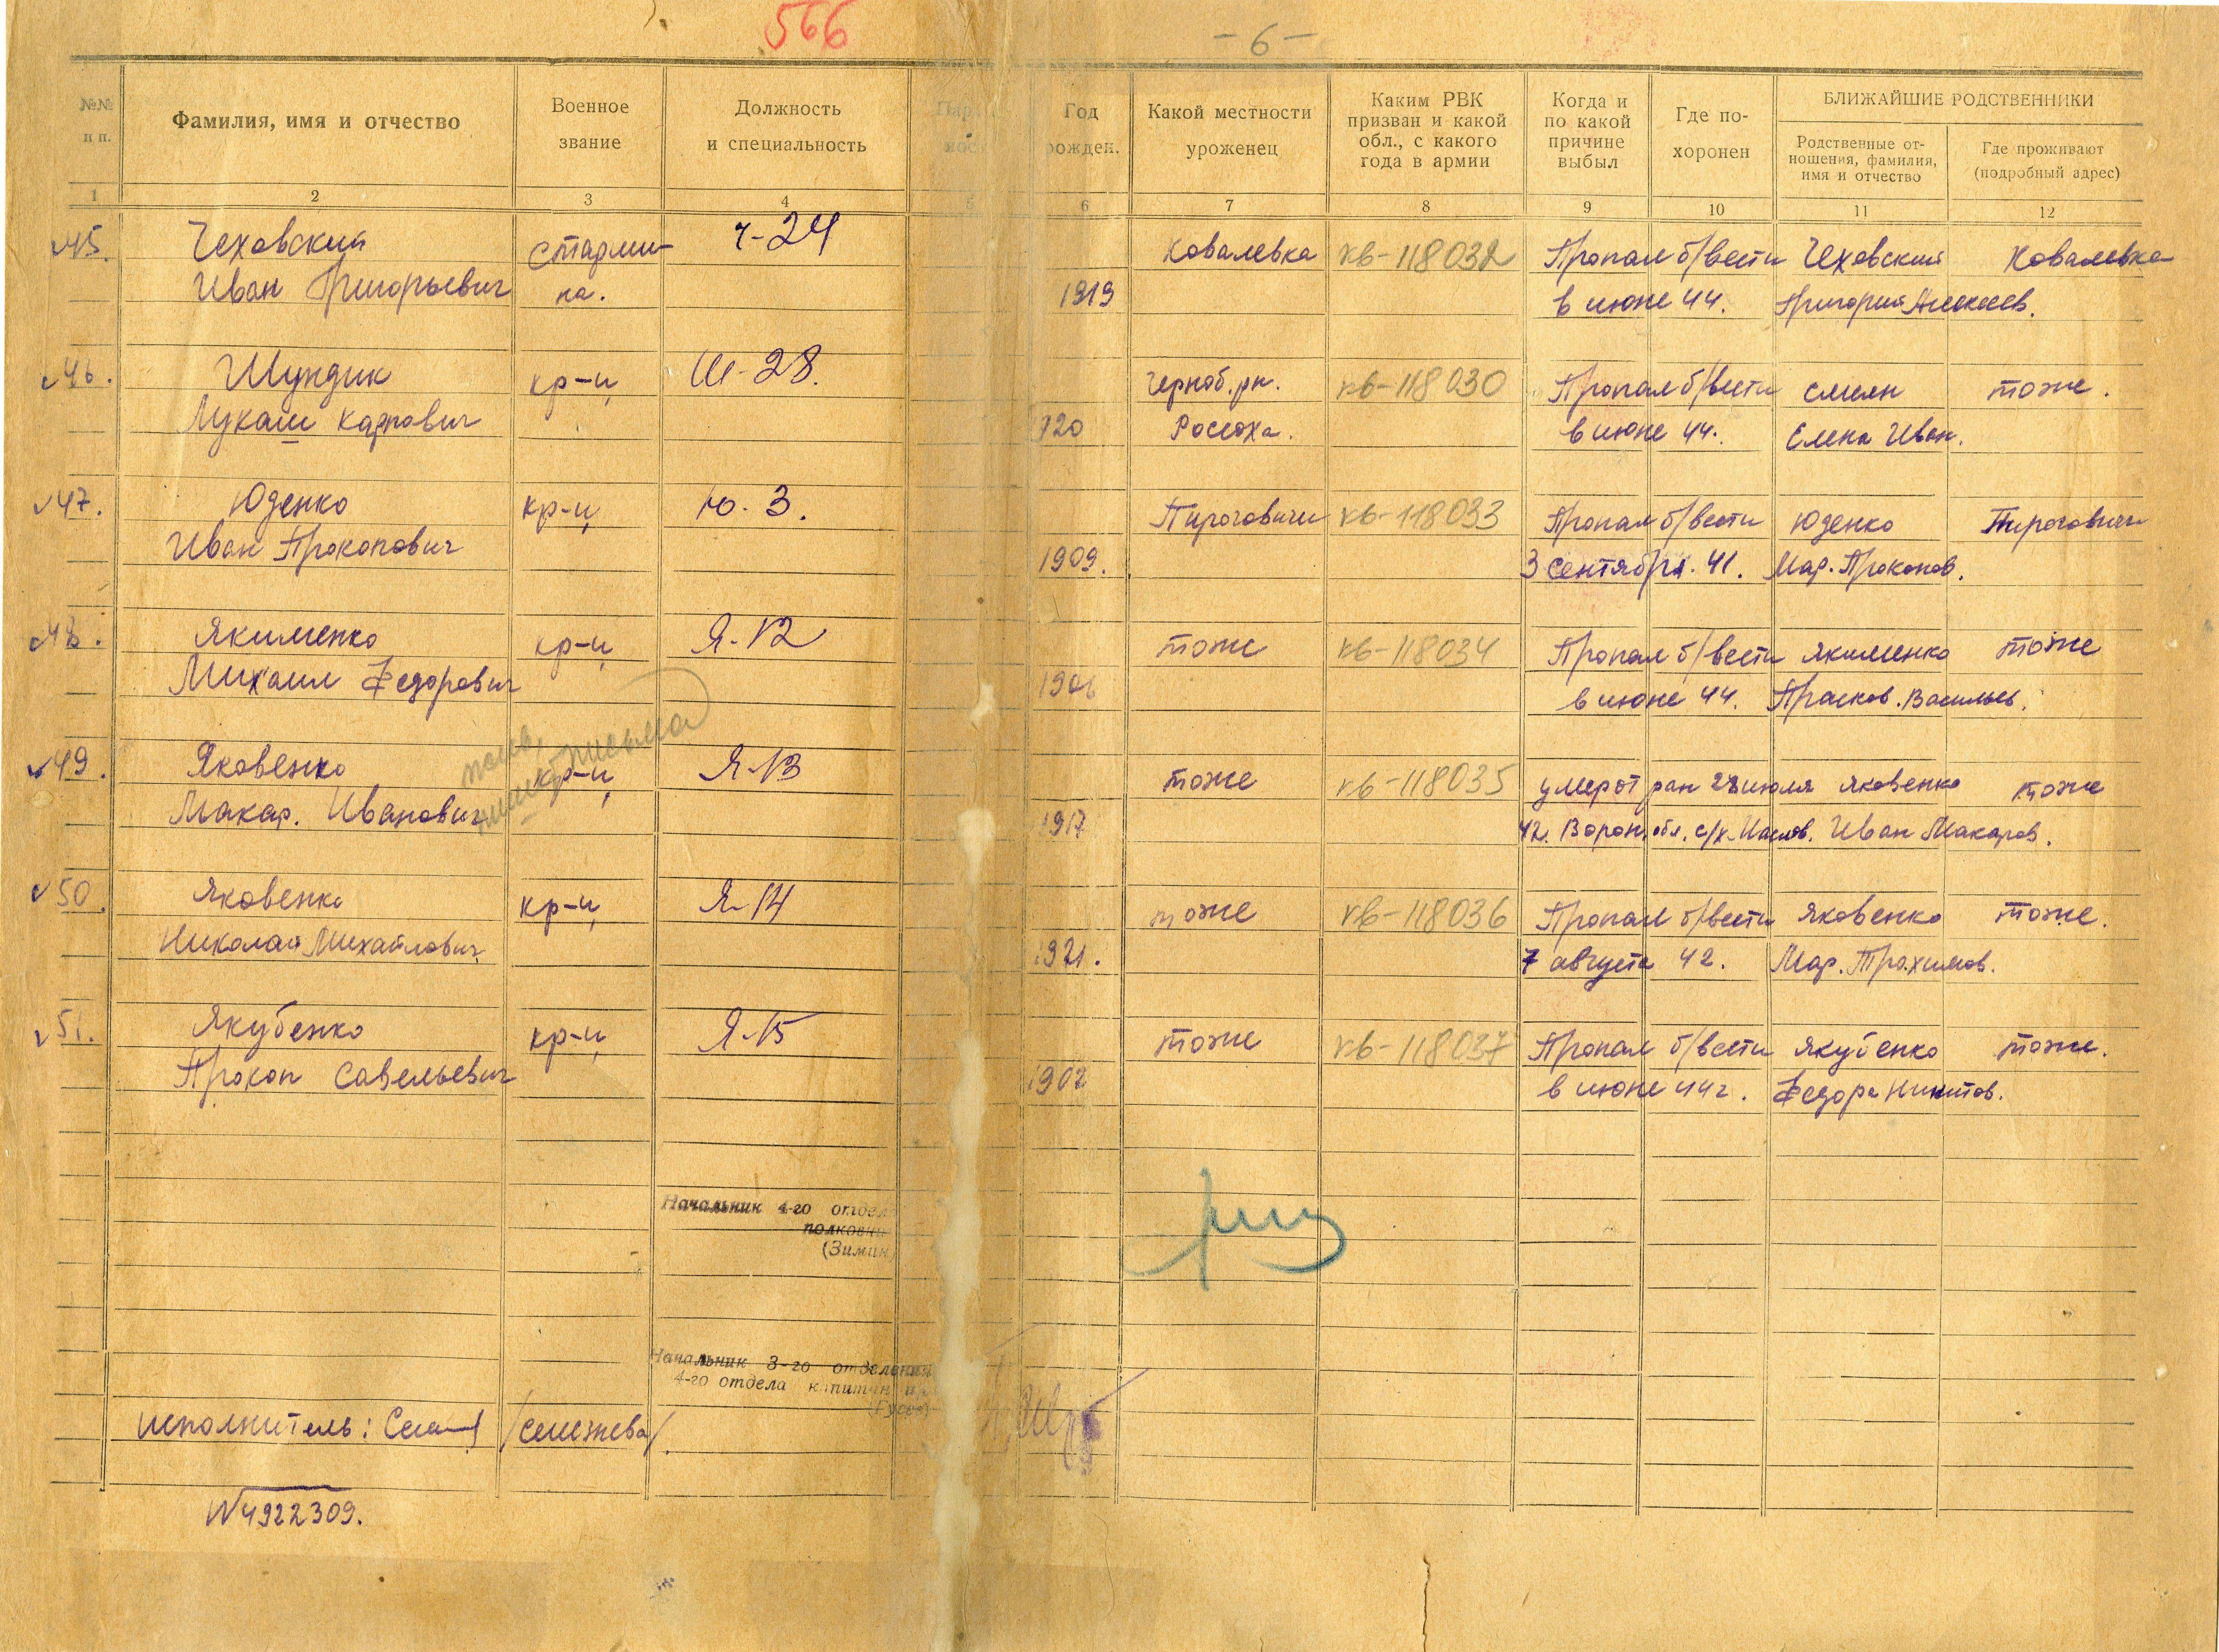 566
- 6 -
№№ п п.
Фамилия, имя и отчество
Военное звание
Должность и специальность
Год рожден.
Какой местности уроженец
Каким РВК призван и какой обл., с какого года в армии
Когда и по какой причине выбыл
Где похоронен
БЛИЖАЙШИЕ РОДСТВЕННИКИ
Родственные отношения, фамилия, имя и отчество
Где проживают (подробный адрес)
1 2 3 4 5 6 7 8 9 10 11 12
45. Чеховский старши- Ч-24 Ковалевка кв-118032 Пропал б/вести Чеховский Ковалевка
Иван Григорьевич на. 1919 в июне 44. Григорий Алексеев.
46. Шундик кр-ц Ш-28. Черноб. рн. кв-118030 Пропал б/вести Смиян тоже.
Лукаш Карпович 920 Россоха. в июне 44. Елена Иван.
47. Юденко кр-ц Ю. 3. Пироговичи кв-118033 Пропал б/вести Юденко Пироговичи
Иван Прокопович 1909. 3 сентября. 41. Мар. Прокопов.
48. Якименко кр-ц Я-12 тоже кв-118034 Пропал б/вести Якименко тоже
Михаил Федорович 1906 в июне 44. Прасков. Васильев.
письма
49. Яковенко кр-ц Я-13 тоже кв-118035 умер от ран 28 июля Яковенко тоже
Макар. Иванович 1917 42. Ворон. обл. с/х. Иван Макаров.
50. Яковенко кр-ц Я-14 тоже кв-118036 Пропал б/вести Яковенко тоже.
Николай Михайлович 1921. 7 августа 42. Мар. Трахимов.
51. Якубенко кр-ц Я-15 тоже кв-118037 Пропал б/вести Якубенко тоже.
Прокоп Савельевич 1902 в июне 44г. Федора Никитов.
Начальник 4-го отдел
полковни
(Зимин)
Начальник 3-го отделения
4-го отдела капитан
(Гусев)
исполнитель: /Селезнева/.
N4922309.